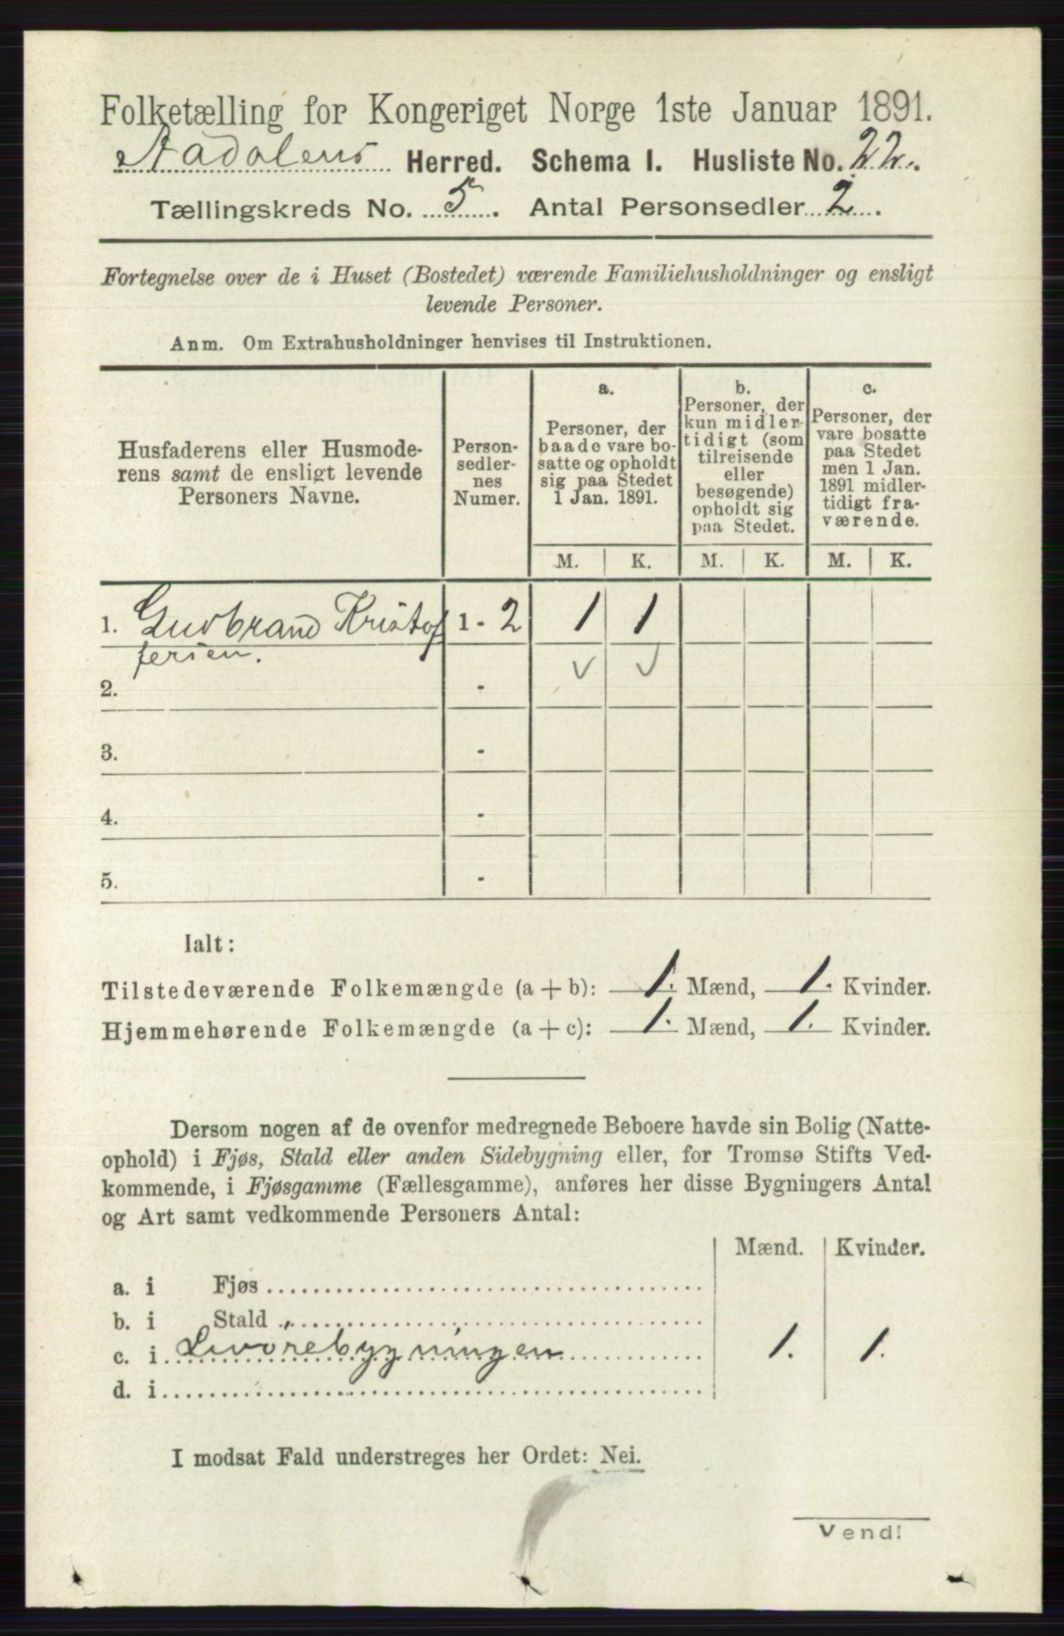 Folketælling for Kongeriget Norge 1ste Januar 1891.
Aadalens Herred. Schema I. Husliste No. 22.
Tællingskreds No. 5. Antal Personsedler 2.
Fortegnelse over de i Huset (Bostedet) værende Familiehusholdninger og ensligt
levende Personer.
Anm. Om Extrahusholdninger henvises til Instruktionen.
Husfaderens eller Husmode-
rens samt de ensligt levende
Personers Navne.
Person-
sedler-
nes
Numer.
a.
Personer, der
baade vare bo-
satte og opholdt
sig paa Stedet
1 Jan. 1891.
b.
Personer, der
kun midler-
tidigt (som
tilreisende
eller
besøgende)
opholdt sig
paa Stedet.
c.
Personer, der
vare bosatte
paa Stedet
men 1 Jan.
1891 midler-
tidigt fra-
værende.
M. K. M. K. M. K.
1. Gudbrand Kristof 1 - 2 1 1
fersen. v v
2. -
3. -
4. -
5. -
Ialt:
Tilstedeværende Folkemængde (a + b): 1. Mænd, 1. Kvinder.
Hjemmehørende Folkemængde (a + c): 1. Mænd, 1. Kvinder.
Dersom nogen af de ovenfor medregnede Beboere havde sin Bolig (Natte-
ophold) i Fjøs, Stald eller anden Sidebygning eller, for Tromsø Stifts Ved-
kommende, i Fjøsgamme (Fællesgamme), anføres her disse Bygningers Antal
og Art samt vedkommende Personers Antal:
Mænd. Kvinder.
a. i Fjøs
b. i Stald
c. i bygningen 1. 1.
d. i
I modsat Fald understreges her Ordet: Nei.
Vend!